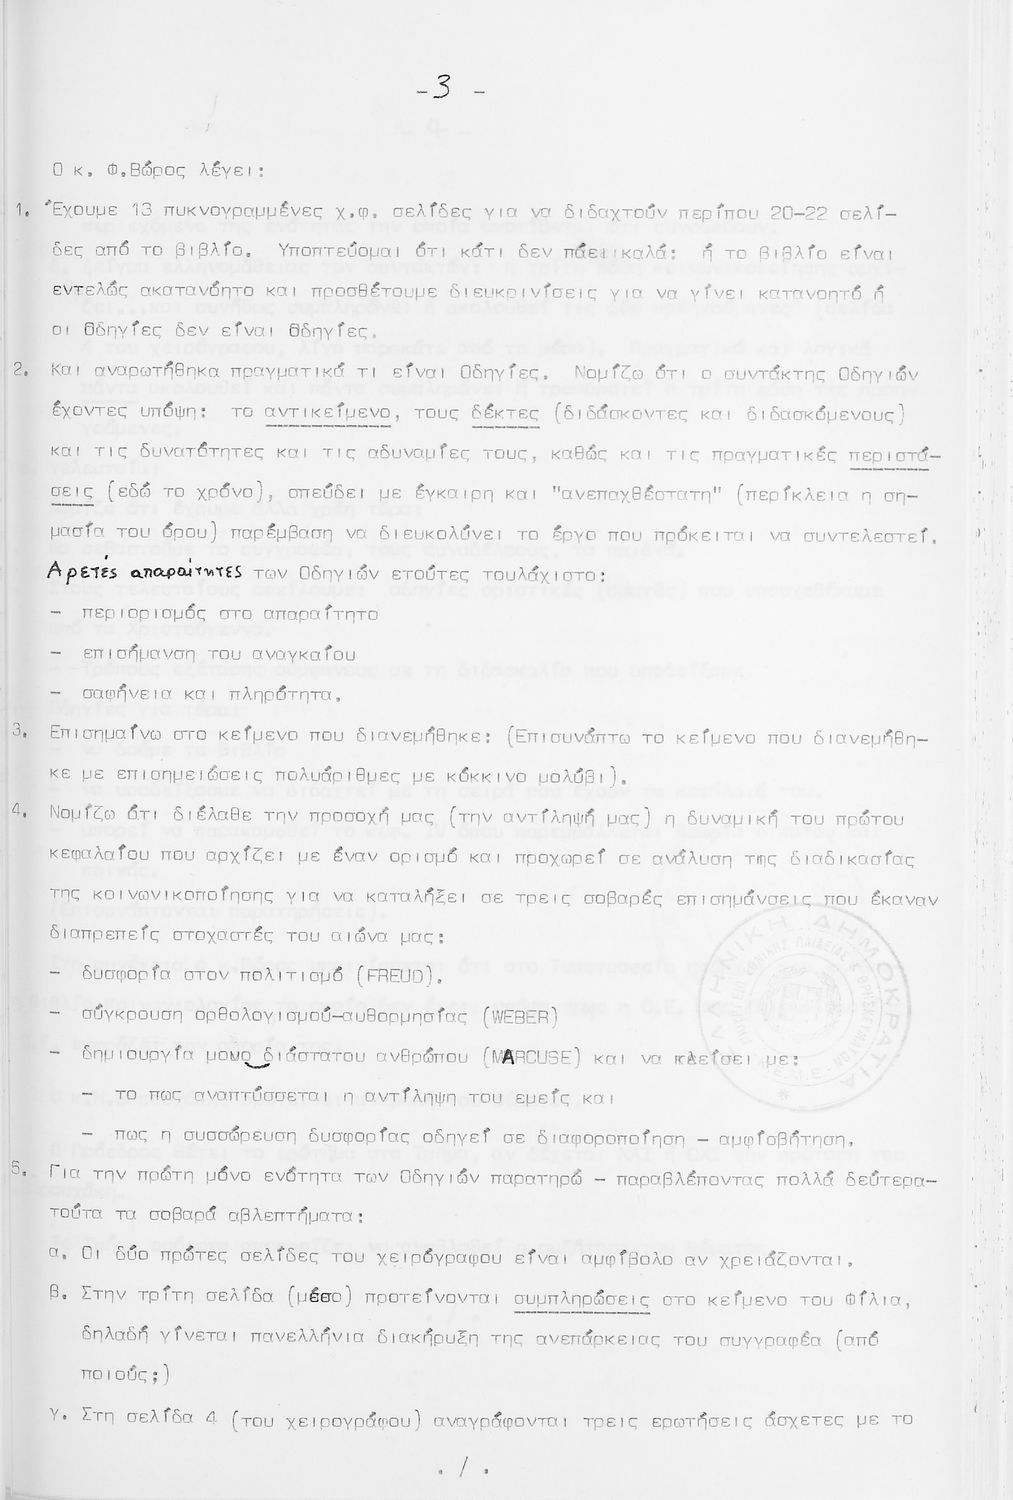 -3 -
Ο κ. Φ.Βώρος λέγει:
1. Έχουμε 13 πυκνογραμμένες χ.φ. σελίδες για να διδαχτούν περίπου 20-22 σελί-
δες από το βιβλίο. Υποπτεύομαι ότι κάτι δεν πάει καλά: ή το βιβλίο είναι
εντελώς ακατανόητο και προσθέτουμε διευκρινίσεις για να γίνει κατανοητό ή
οι Οδηγίες δεν είναι Οδηγίες.
2. Και αναρωτήθηκα πραγματικά τι είναι Οδηγίες. Νομίζω ότι ο συντάκτης Οδηγιών
έχοντες υπόψη: το αντικείμενο, τους δέκτες (διδάσκοντες και διδασκόμενους)
και τις δυνατότητες και τις αδυναμίες τους, καθώς και τις πραγματικές περιστά-
σεις (εδώ το χρόνο), σπεύδει με έγκαιρη και "ανεπαχθέστατη" (περίκλεια η ση-
μασία του όρου) παρέμβαση να διευκολύνει το έργο που πρόκειται να συντελεστεί.
Αρετές απαραίτητες των Οδηγιών ετούτες τουλάχιστο:
- περιορισμός στο απαραίτητο
- επισήμανση του αναγκαίου
- σαφήνεια και πληρότητα.
3. Επισημαίνω στο κείμενο που διανεμήθηκε: (Επισυνάπτω το κείμενο που διανεμήθη-
κε με επισημειώσεις πολυάριθμες με κόκκινο μολύβι).
4. Νομίζω ότι διέλαθε την προσοχή μας (την αντίληψή μας) η δυναμική του πρώτου
κεφαλαίου που αρχίζει με έναν ορισμό και προχωρεί σε ανάλυση της διαδικασίας
της κοινωνικοποίησης για να καταλήξει σε τρεις σοβαρές επισημάνσεις που έκαναν
διαπρεπείς στοχαστές του αιώνα μας:
- δυσφορία στον πολιτισμό (FREUD),
- σύγκρουση ορθολογισμού-αυθορμησίας (WEBER)
- δημιουργία μονο διάστατου ανθρώπου (MARCUSE) και να κλείσει με:
- το πως αναπτύσσεται η αντίληψη του εμείς και
- πως η συσσώρευση δυσφορίας οδηγεί σε διαφοροποίηση - αμφισβήτηση.
5. Για την πρώτη μόνο ενότητα των Οδηγιών παρατηρώ - παραβλέποντας πολλά δεύτερα-
τούτα τα σοβαρά αβλεπτήματα:
α. Οι δύο πρώτες σελίδες του χειρόγραφου είναι αμφίβολο αν χρειάζονται.
β. Στην τρίτη σελίδα (μέσο) προτείνονται συμπληρώσεις στο κείμενο του Φίλια,
δηλαδή γίνεται πανελλήνια διακήρυξη της ανεπάρκειας του συγγραφέα (από
ποιούς;)
γ. Στη σελίδα 4 (του χειρογράφου) αναγράφονται τρεις ερωτήσεις άσχετες με το
./.
ΕΛΛΗΝΙΚΗ ΔΗΜΟΚΡΑΤΙΑ